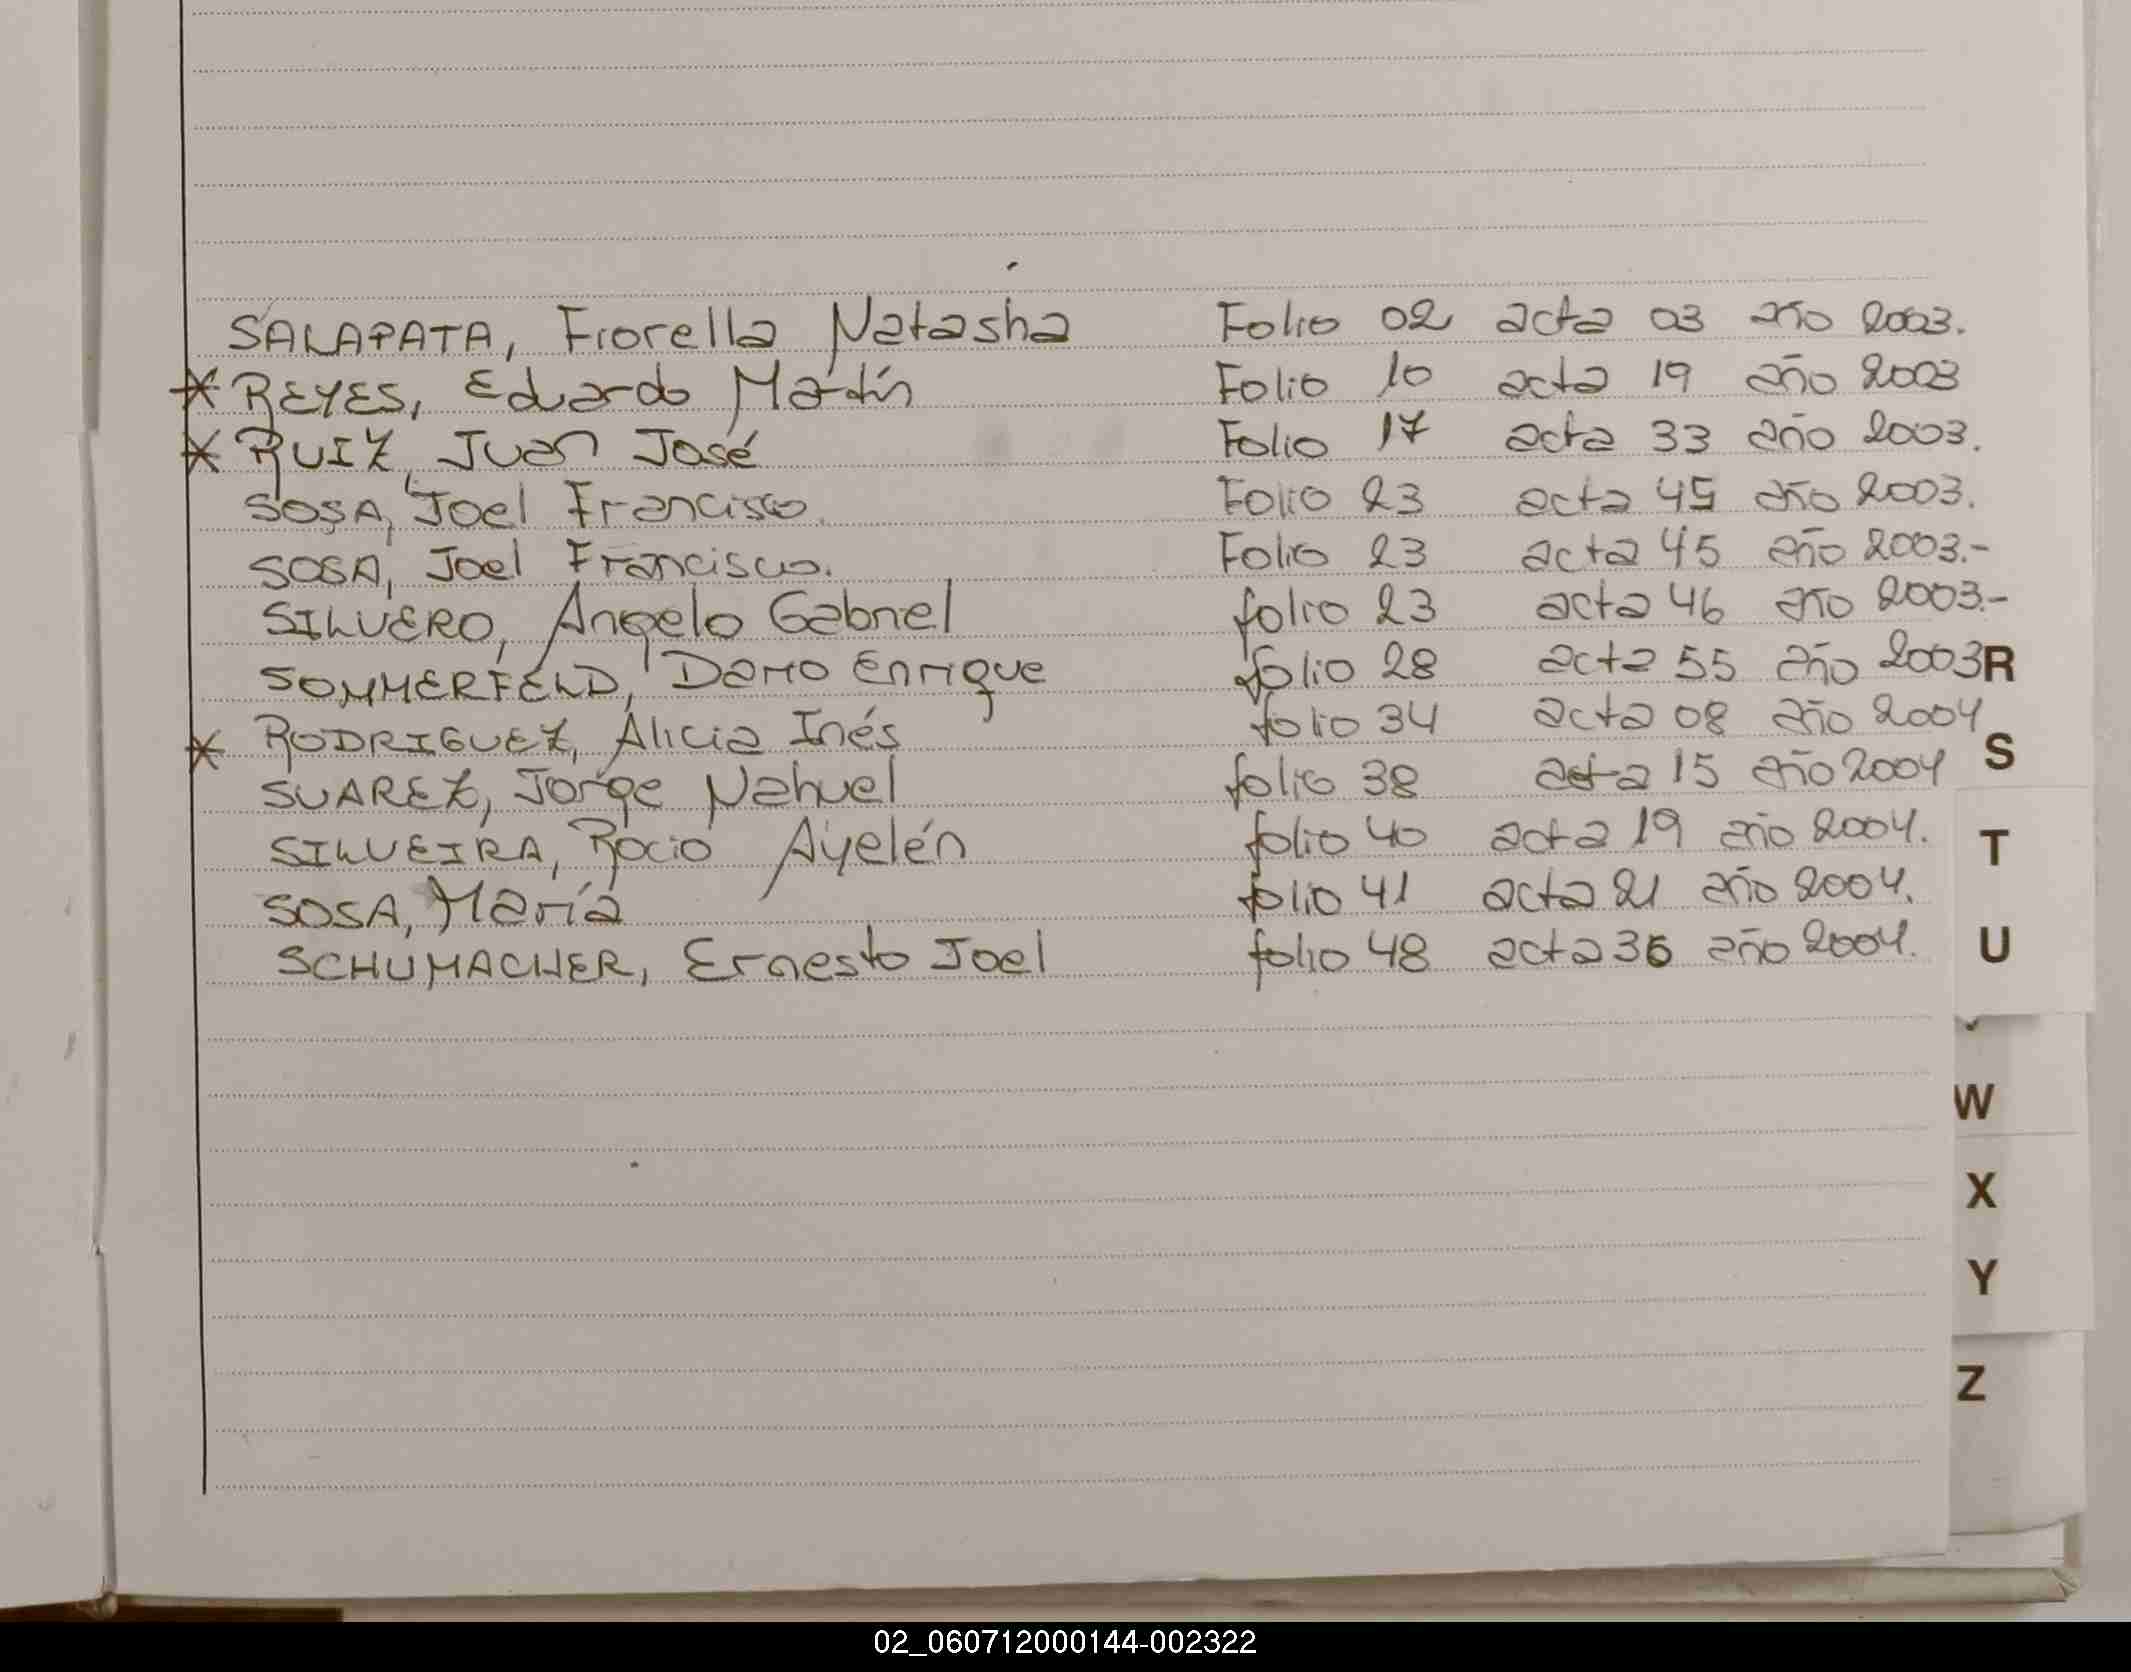 SALAPATA, Fiorella Natasha Folio 02 acta 03 año 2003.
* REYES, Eduardo Martín Folio 10 acta 19 año 2003
* RUIZ, Juan José Folio 17 acta 33 año 2003.
SOSA, Joel Francisco. Folio 23 acta 45 año 2003.
SOSA, Joel Francisco. Folio 23 acta 45 año 2003.-
SILVERO, Angelo Gabriel folio 23 acta 46 año 2003.-
SOMMERFELD, Dario Enrique folio 28 acta 55 año 2003
R
* RODRIGUEZ, Alicia Inés folio 34 acta 08 año 2004
S
SUAREZ, Jorge Nahuel folio 38 acta 15 año 2004
SILVEIRA, Rocío Ayelén folio 40 acta 19 año 2004.
T
SOSA, María folio 41 acta 21 año 2004.
SCHUMACHER, Ernesto Joel folio 48 acta 36 año 2004.
U
W
X
Y
Z
02_060712000144-002322